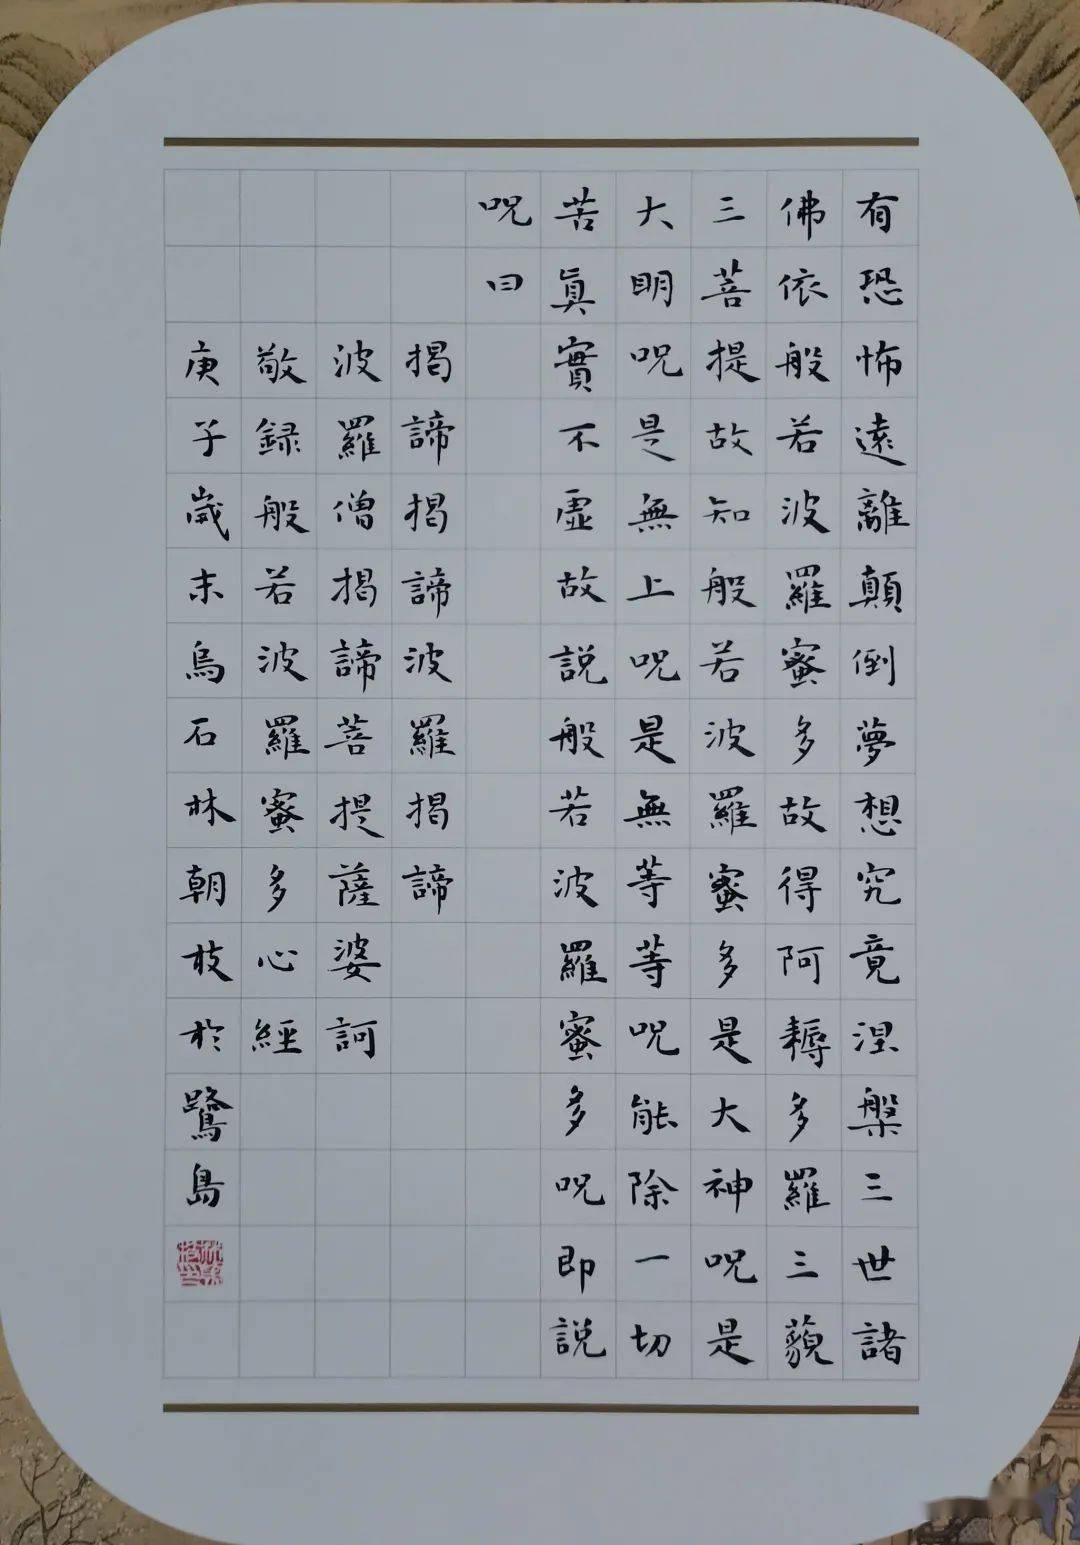 有恐怖遠離顛倒夢想究竟涅槃三世諸
佛依般若波羅蜜多故得阿耨多羅三藐
三菩提故知般若波羅蜜多是大神呪是
大明呪是無上呪是無等等呪能除一切
苦真實不虛故說般若波羅蜜多呪即說
呪曰
揭諦揭諦波羅揭諦
波羅僧揭諦菩提薩婆訶
敬録般若波羅蜜多心經
庚子歲末烏石林朝枝於鷺島